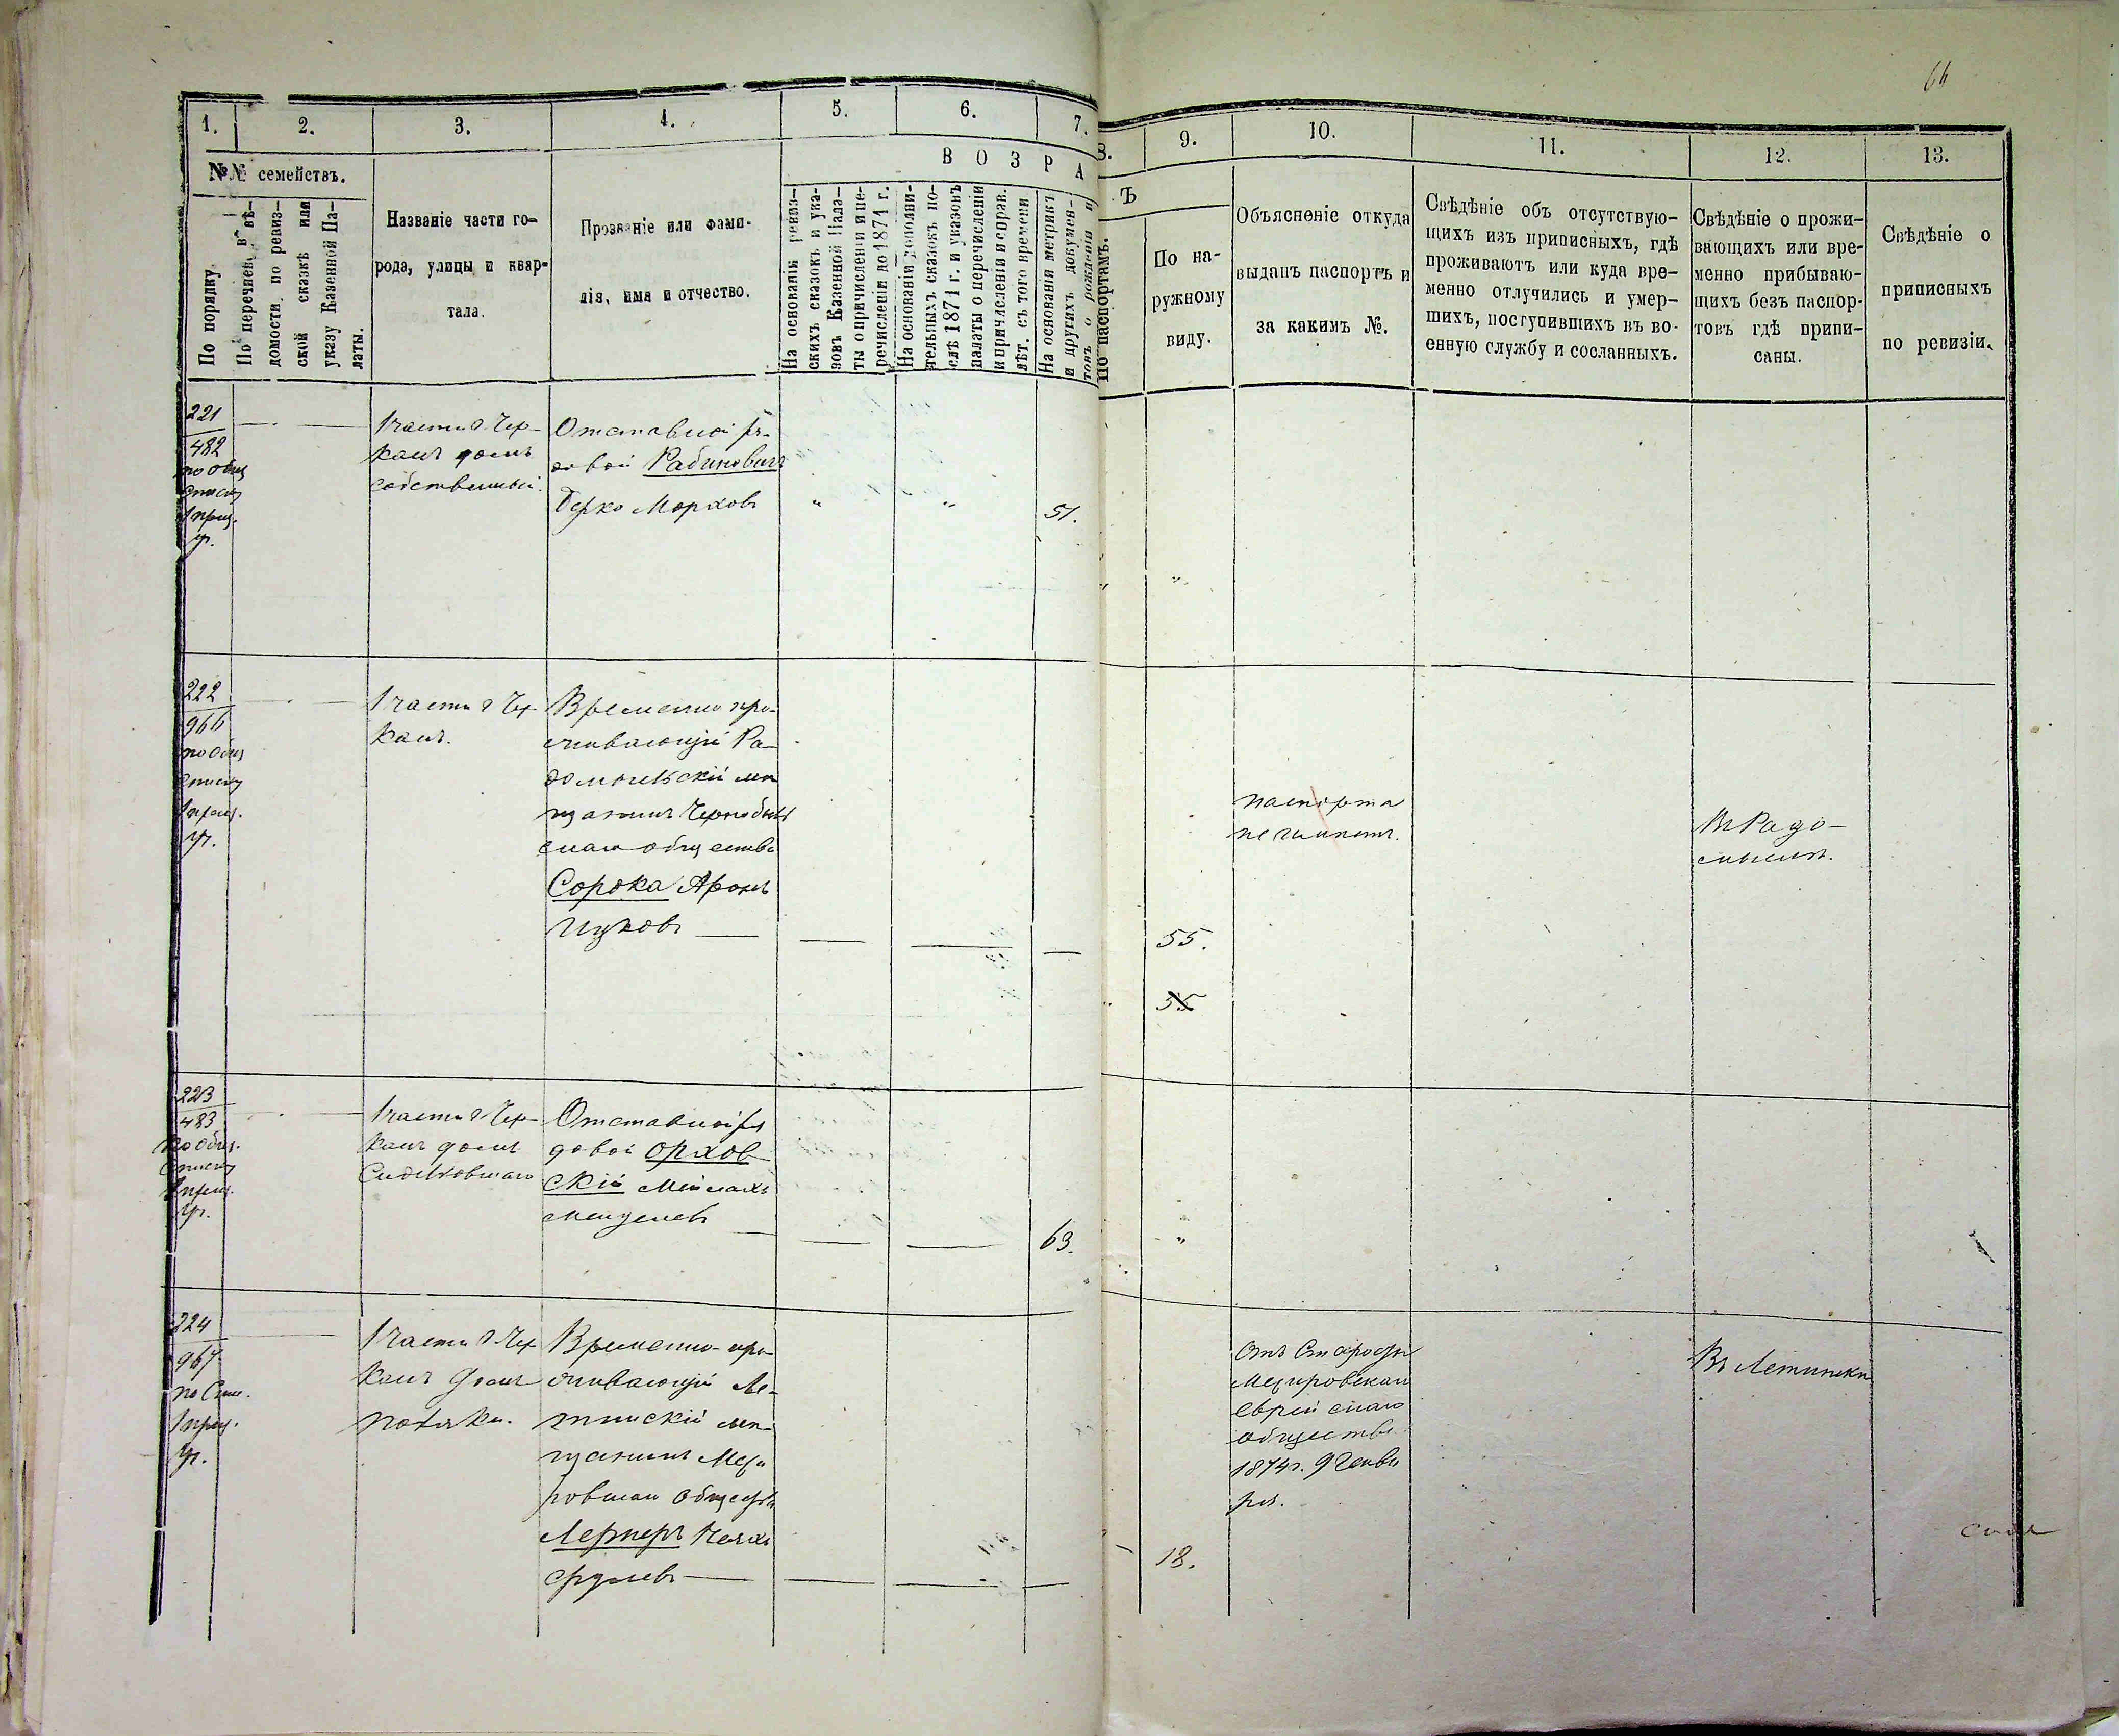 64
1.
2.
3.
4.
5.
6.
7.
8.
9.
10.
11.
12.
13.
№№ семействъ.
По порядку
По перечнев. вѣ-
домости, по ревиз-
ской сказкѣ или
указу Казенной Па-
латы.
Названіе части го-
рода, улицы и квар-
тала.
Прозваніе или фами-
лія, имя и отчество.
ВОЗРА
Ъ
На основаніи ревиз-
скихъ сказокъ и ука-
зовъ Казенной Пала-
ты о причисленіи и пе-
речисленіи до 1871 г.
На основаніи дополни-
тельныхъ сказокъ по-
слѣ 1871 г. и указовъ
палаты о перечисленіи
и причисленіи и справ.
лѣт. съ того времени.
На основаніи метрикъ
и другихъ докумен-
товъ о рожденіи и
По паспортамъ.
По на-
ружному
виду.
Объясненіе откуда
выданъ паспортъ и
за какимъ №.
Свѣдѣніе объ отсутствую-
щихъ изъ приписныхъ, гдѣ
проживаютъ или куда вре-
менно отлучились и умер-
шихъ, поступившихъ въ во-
енную службу и сосланныхъ.
Свѣдѣніе о прожи-
вающихъ или вре-
менно прибываю-
щихъ безъ паспор-
товъ гдѣ припи-
саны.
Свѣдѣніе о
приписныхъ
по ревизіи.
221
482
по общ
списку
1 приз.
уч.
1 части г. Чер-
касъ домъ
собственный.
Отставной ря-
довой Рабиновичъ
Берко Морховъ
"
"
51.
"
"
222
966
по общ
списку
1 приз.
уч.
1 части г. Чер
касъ.
Временно про-
живающій Ра-
домысльскій мѣ
щанинъ Чернобыль
скаго общества
Сорока Аронъ
Ицковъ
55.
55
паспорта
не имѣетъ.
Въ Радо-
мыслѣ.
223
483
по общ.
списку
1 приз.
уч.
1 части г. Чер-
касъ домъ
Отставной ря
довой Орхов
скій Мейлахъ
Менделевъ
63.
"
224
967
по Спис.
1 приз.
уч.
1 части г. Чер
касъ домъ
Временно про
живающій Ле-
тинскій мѣ
щанинъ Межи
ровскаго общества
Лернеръ
Срулевъ
18.
Отъ Старосты
Межировскаго
еврейскаго
общества
1874 г. 9 Генва
ря.
Въ Летинѣ